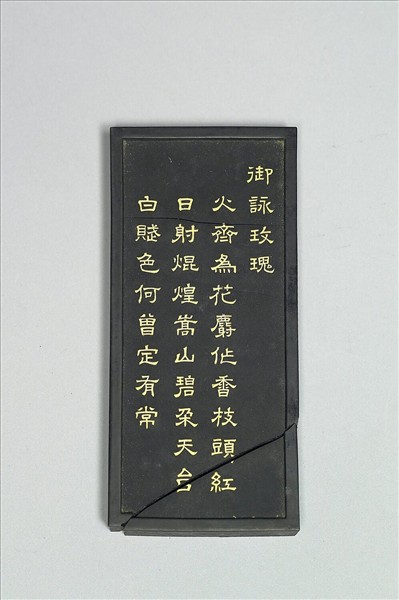 御詠玫瑰
火齊為花麝作香枝頭紅
日射焜煌嵩山碧朶天台
白賦色何曾定有常